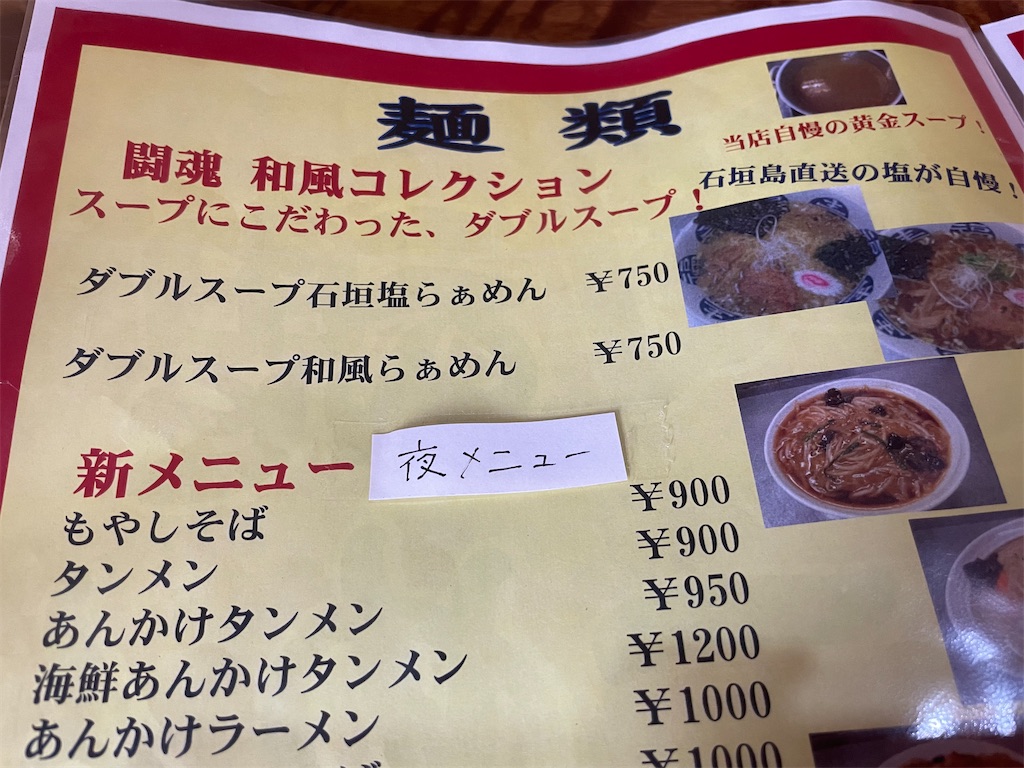 麺類
当店自慢の黄金スープ!
闘魂 和風コレクション
石垣島直送の塩が自慢!
スープにこだわった、ダブルスープ!
ダブルスープ石垣塩らぁめん ¥750
ダブルスープ和風らぁめん ¥750
新メニュー 夜メニュー
もやしそば ¥900
タンメン ¥900
あんかけタンメン ¥950
海鮮あんかけタンメン ¥1200
あんかけラーメン ¥1000
¥1000